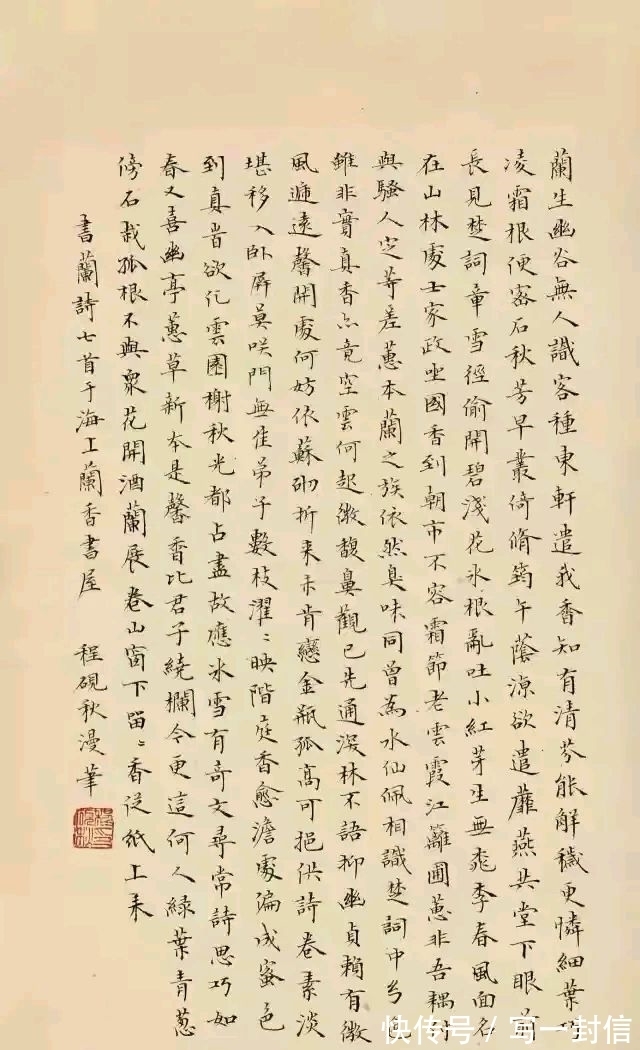 蘭生幽谷無人識客種東軒遣我香知有清芬能解穢更憐細葉巧
凌霜根便密石秋芳早叢倚脩筠午蔭涼欲遣蘼蕪共堂下眼前
長見楚詞章雪徑偷開碧淺花氷根亂吐小紅芽生無桃李春風面名
在山林處士家政坐國香到朝市不容霜節老雲霞江蘺圃蕙非吾耦
與騷人定等差蕙本蘭之族依然臭味同曾為水仙佩相識楚詞中兮色
雖非實真香亦竟空雲何起微馥鼻觀已先通深林不語抑幽貞賴有微
風遞遠馨開處何妨依蘇砌折来未肯戀金瓶孤高可挹供詩卷素淡
堪移入卧屏莫咲門無佳弟子數枝濯〻映階庭香愈澹處偏成蜜色
到真皆欲化雲園榭秋光都占盡故應氷雪有奇文尋常詩思巧如
春又喜幽亭蕙草新本是馨香比君子繞欄令更這何人緑葉青葱
傍石栽孤根不與衆花開酒蘭展卷山窗下留〻香從紙上来
書蘭詩七首于海上蘭香書屋 程硯秋漫筆
快传号/写一封信